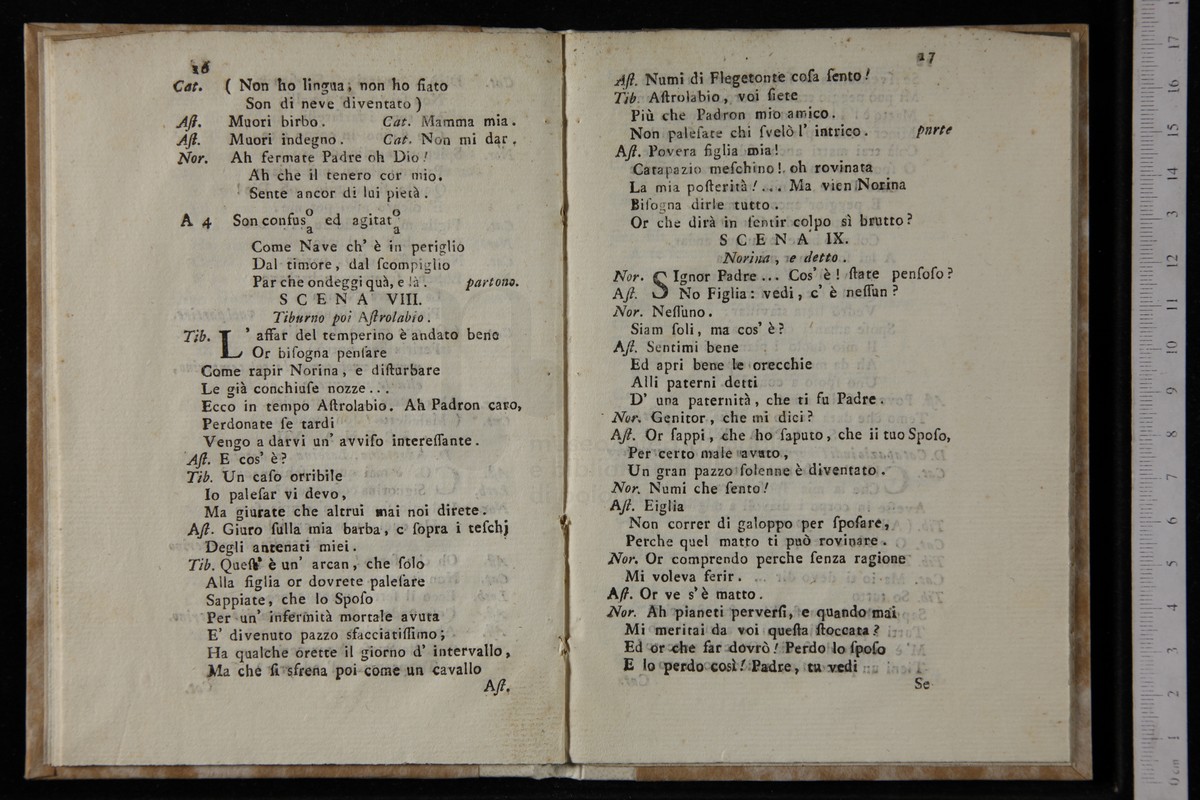 16
Cat. ( Non ho lingua, non ho fiato
Son di neve diventato )
Aſt. Muori birbo. Cat. Mamma mia.
Aſt. Muori indegno. Cat. Non mi dar.
Nor. Ah fermate Padre oh Dio!
Ah che il tenero cor mio.
Sente ancor di lui pietà.
A 4 Son confus o/a ed agitat o/a
Come Nave ch' è in periglio
Dal timore, dal ſcompiglio
Par che ondeggi quà, e là. partono.
SCENA VIII.
Tiburno poi Aſtrolabio.
Tib. L' affar del temperino è andato bene
Or biſogna penſare
Come rapir Norina, e diſturbare
Le già conchiuſe nozze...
Ecco in tempo Aſtrolabio. Ah Padron caro,
Perdonate ſe tardi
Vengo a darvi un' avviſo intereſſante.
Aſt. E cos' è?
Tib. Un caſo orribile
Io paleſar vi devo,
Ma giurate che altrui mai noi direte.
Aſt. Giuro ſulla mia barba, e ſopra i teſchj
Degli antenati miei.
Tib. Queſt' è un' arcan, che ſolo
Alla figlia or dovrete paleſare
Sappiate, che lo Spoſo
Per un' infermità mortale avuta
E' divenuto pazzo sfacciatiſſimo;
Ha qualche orette il giorno d' intervallo,
Ma che ſi sfrena poi come un cavallo
Aſt.
17
Aſt. Numi di Flegetonte coſa ſento!
Tib. Aſtrolabio, voi ſiete
Più che Padron mio amico.
Non paleſate chi ſvelò l' intrico. pnrte
Aſt. Povera figlia mia!
Catapazio meſchino!. oh rovinata
La mia poſterità!... Ma vien Norina
Biſogna dirle tutto.
Or che dirà in ſentir colpo sì brutto?
SCENA IX.
Norina, e detto.
Nor. SIgnor Padre... Cos' è! ſtate penſoſo?
Aſt. No Figlia: vedi, c' è neſſun?
Nor. Neſſuno.
Siam ſoli, ma cos' è?
Aſt. Sentimi bene
Ed apri bene le orecchie
Alli paterni detti
D' una paternità, che ti fu Padre.
Nor. Genitor, che mi dici?
Aſt. Or ſappi, che ho ſaputo, che ii tuo Spoſo,
Per certo male avuto,
Un gran pazzo ſolenne è diventato.
Nor. Numi che ſento!
Aſt. Eiglia
Non correr di galoppo per ſpoſare,
Perche quel matto ti può rovinare.
Nor. Or comprendo perche ſenza ragione
Mi voleva ferir.
Aſt. Or ve s'è matto.
Nor. Ah pianeti perverſi, e quando mai
Mi meritai da voi queſta ſtoccata?
Ed or che far dovrò! Perdo lo ſpoſo
E lo perdo così! Padre, tu vedi
Se